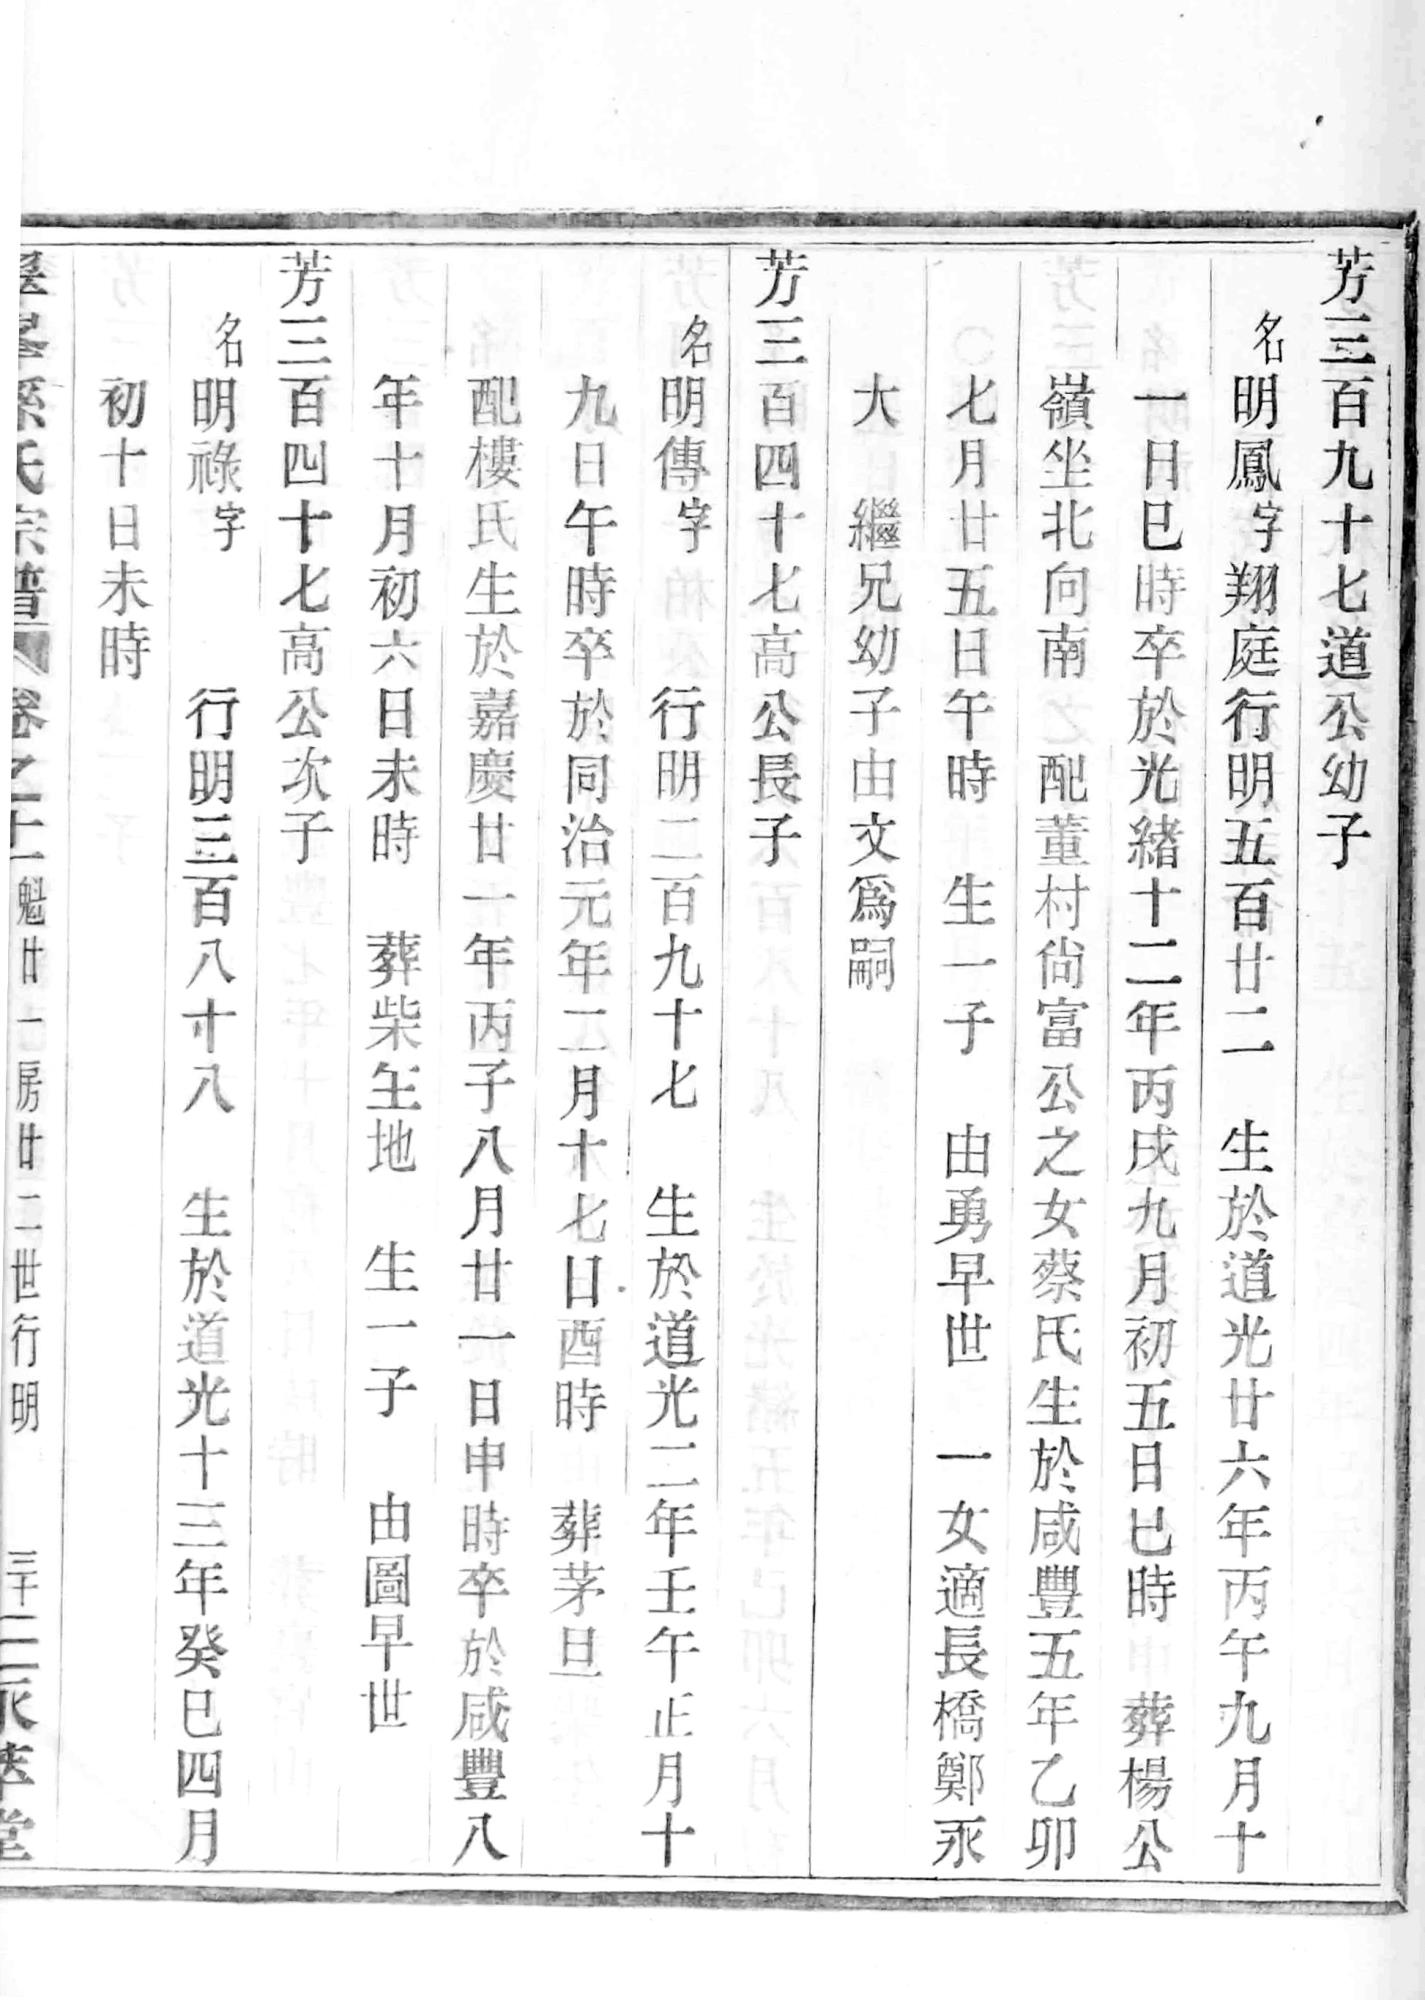 芳三百九十七道公幼子
名明鳳字翔庭行明五百廿二　生於道光廿六年丙午九月十
一日巳時卒於光緒十二年丙戌九月初五日巳時　葬楊公
嶺坐北向南之　配董村尙富公之女蔡氏生於咸豐五年乙卯
七月廿五日午時　生一子　由勇早世　一女適長橋鄭永
大　繼兄幼子由文爲嗣
芳三百四十七高公長子
名明傳字　行明二百九十七　生於道光二年壬午正月十
九日午時卒於同治元年二月十七日酉時　葬茅旦
配樓氏生於嘉慶廿一年丙子八月廿一日申時卒於咸豐八
年十月初六日未時　葬柴㘴地　生一子　由圖早世
芳三百四十七高公次子
名明祿字　行明三百八十八　生於道光十三年癸巳四月
初十日未時
孫氏宗譜　卷之十一　魁廿一房廿二世行明　三十二　永萃堂